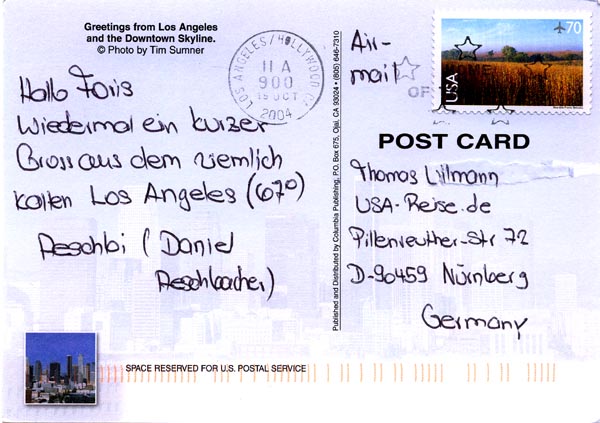 Greetings from Los Angeles
and the Downtown Skyline.
© Photo by Tim Sumner
Hallo Foris
Wiedermal ein kurzer
Gruss aus dem ziemlich
kalten Los Angeles (67°)
Aeschbi (Daniel
Aeschbacher)
LOS ANGELES/HOLLYWOOD CA
11 A
900
15 OCT
2004
Air-
mail
OF
70
USA
POST CARD
Thomas Lillmann
USA-Reise.de
Pillenreuther-Str 72
D-90459 Nürnberg
Germany
Published and Distributed by Columbia Publishing, P.O. Box 675, Ojai, CA 93024 • (805) 646-7310
SPACE RESERVED FOR U.S. POSTAL SERVICE